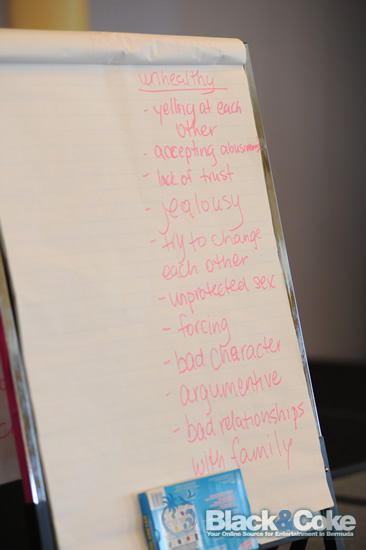 unhealthy
- yelling at each
other
- accepting
- lack of trust
- jealousy
- try to change
each other
- unprotected sex
- forcing
- bad character
- argumentive
- bad relationships
with family
Black&Coke
Your Online Source for Entertainment in Bermuda